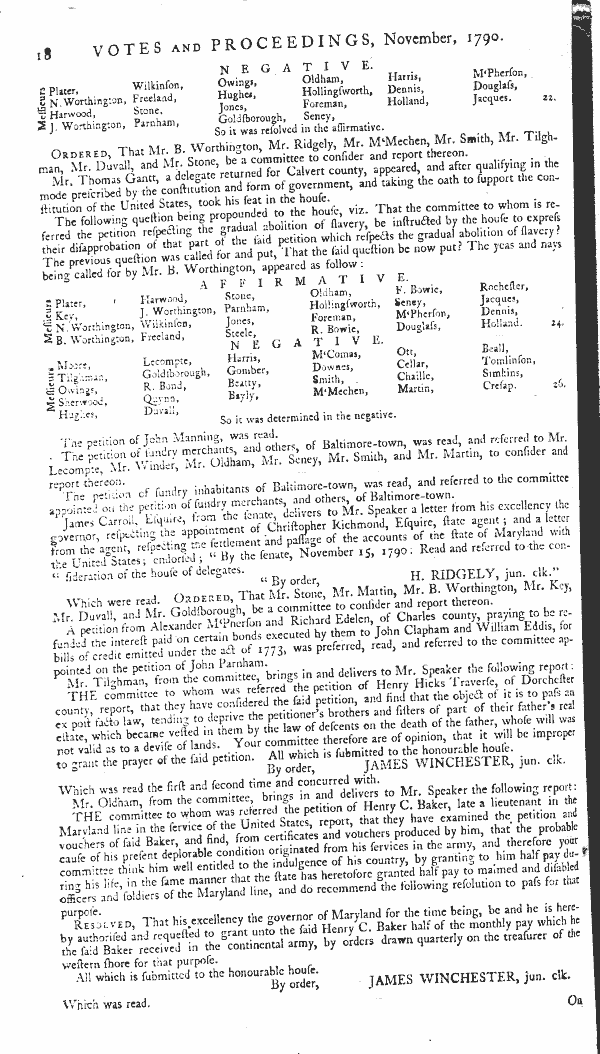 18 VOTES AND PROCEEDINGS, November, 1790.
NEGATIVE.
Meſſieurs Plater, Wilkinſon, Owings, Oldham, Harris, M'Pherſon,
N. Worthington, Freeland, Hughes, Hollingſworth, Dennis, Douglaſs,
Harwood, Stone, Jones, Foreman, Holland, Jacques. 22.
J. Worthington, Parnham, Goldſborough, Seney,
So it was reſolved in the affirmative.
ORDERED, That Mr. B. Worthington, Mr. Ridgely, Mr. M'Mechen, Mr. Smith, Mr. Tilgh-
man, Mr. Duvall, and Mr. Stone, be a committee to conſider and report thereon.
Mr. Thomas Gantt, a delegate returned for Calvert county, appeared, and after qualifying in the
mode preſcribed by the conſtitution and form of government, and taking the oath to ſupport the con-
ſtitution of the United States, took his ſeat in the houſe.
The following queſtion being propounded to the houſe, viz. That the committee to whom is re-
ferred the petition reſpecting the gradual abolition of ſlavery, be inſtructed by the houſe to expreſs
their diſapprobation of that part of the ſaid petition which reſpects the gradual abolition of ſlavery?
The previous queſtion was called for and put, That the ſaid queſtion be now put? The yeas and nays
being called for by Mr. B. Worthington, appeared as follow:
AFFIRMATIVE.
Meſſieurs Plater, Harwood, Stone, Oldham, F. Bowie, Rocheſter,
Key, J. Worthington, Parnham, Hollingſworth, Seney, Jacques,
N. Worthington, Wilkinſon, Jones, Foreman, M'Pherſon, Dennis,
B. Worthington, Freeland, Steele, R. Bowie, Douglaſs, Holland. 24.
NEGATIVE.
Meſſieurs Moore, Lecompte, Harris, M'Comas, Ott, Beall,
Tilghman, Goldſborough, Gomber, Downes, Cellar, Tomlinſon,
Owings, R. Bond, Beatty, Smith, Chaille, Simkins,
Sherwood, Quynn, Bayly, M'Mechen, Martin, Creſap. 26.
Hughes, Duvall,
So it was determined in the negative.
The petition of John Manning, was read.
The petition of ſundry merchants, and others, of Baltimore-town, was read, and referred to Mr.
Lecompte, Mr. Winder, Mr. Oldham, Mr. Seney, Mr. Smith, and Mr. Martin, to conſider and
report thereon.
The petition of ſundry inhabitants of Baltimore-town, was read, and referred to the committee
appointed on the petition of ſundry merchants, and others, of Baltimore-town.
James Carroll, Eſquire, from the ſenate, delivers to Mr. Speaker a letter from his excellency the
governor, reſpecting the appointment of Chriſtopher Richmond, Eſquire, ſtate agent; and a letter
from the agent, reſpecting the ſettlement and paſſage of the accounts of the ſtate of Maryland with
the United States; endorſed; "By the ſenate, November 15, 1790: Read and referred to the con-
"ſideration of the houſe of delegates.
"By order, H. RIDGELY, jun. clk."
Which were read. ORDERED, That Mr. Stone, Mr. Martin, Mr. B. Worthington, Mr. Key,
Mr. Duvall, and Mr. Goldſborough, be a committee to conſider and report thereon.
A petition from Alexander M'Pherſon and Richard Edelen, of Charles county, praying to be re-
funded the intereſt paid on certain bonds executed by them to John Clapham and William Eddis, for
bills of credit emitted under the act of 1773, was preferred, read, and referred to the committee ap-
pointed on the petition of John Parnham.
Mr. Tilghman, from the committee, brings in and delivers to Mr. Speaker the following report:
THE committee to whom was referred the petition of Henry Hicks Traverſe, of Dorcheſter
county, report, that they have conſidered the ſaid petition, and find that the object of it is to paſs an
ex poſt facto law, tending to deprive the petitioner's brothers and ſiſters of part of their father's real
eſtate, which became veſted in them by the law of deſcents on the death of the father, whoſe will was
not valid as to a deviſe of lands. Your committee therefore are of opinion, that it will be improper
to grant the prayer of the ſaid petition. All which is ſubmitted to the honourable houſe.
By order, JAMES WINCHESTER, jun. clk.
Which was read the firſt and ſecond time and concurred with.
Mr. Oldham, from the committee, brings in and delivers to Mr. Speaker the following report:
THE committee to whom was referred the petition of Henry C. Baker, late a lieutenant in the
Maryland line in the ſervice of the United States, report, that they have examined the petition and
vouchers of ſaid Baker, and find, from certificates and vouchers produced by him, that the probable
cauſe of his preſent deplorable condition originated from his ſervices in the army, and therefore your
committee think him well entitled to the indulgence of his country, by granting to him half pay du-
ring his life, in the ſame manner that the ſtate has heretofore granted half pay to maimed and diſabled
officers and ſoldiers of the Maryland line, and do recommend the following reſolution to paſs for that
purpoſe.
RESOLVED, That his excellency the governor of Maryland for the time being, be and he is here-
by authoriſed and requeſted to grant unto the ſaid Henry C. Baker half of the monthly pay which he
the ſaid Baker received in the continental army, by orders drawn quarterly on the treaſurer of the
weſtern ſhore for that purpoſe.
All which is ſubmitted to the honourable houſe.
By order, JAMES WINCHESTER, jun. clk.
Which was read.
On